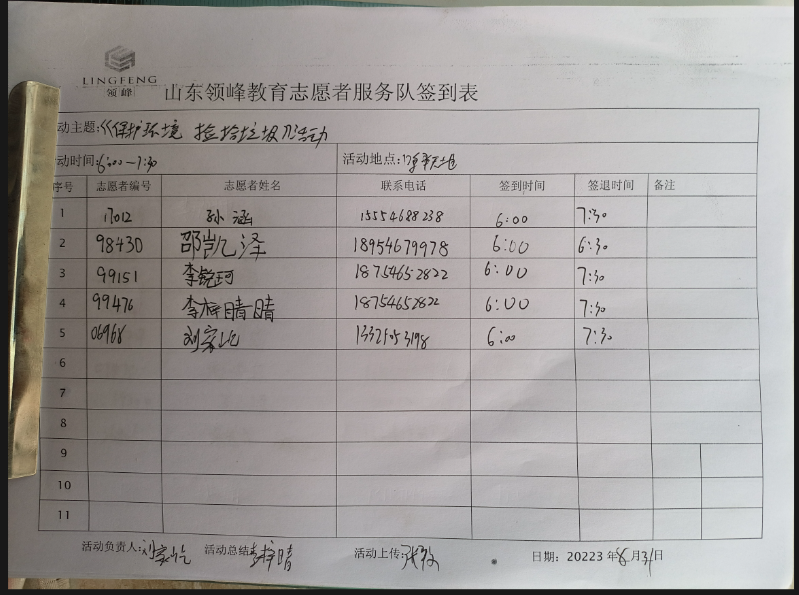 LINGFENG
领峰
山东领峰教育志愿者服务队签到表
动主题:《保护环境 捡拾垃圾》活动
动时间:6:00—7:30 活动地点:
序号 志愿者编号 志愿者姓名 联系电话 签到时间 签退时间 备注
1 17012 孙涵 15554688238 6:00 7:30
2 98430 邵凯泽 18954679978 6:00 6:30
3 99151 李锐珂 18754652822 6:00 7:30
4 99476 李梓晴晴 18754652822 6:00 7:30
5 06968 刘家 13321053198 6:00 7:30
6
7
8
9
10
11
活动负责人:刘家 活动总结:李梓晴 活动上传:张 日期: 20223 年 8 月 31 日